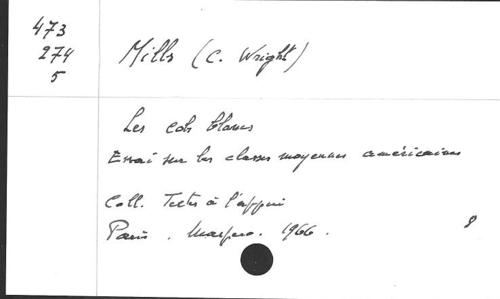 473
274
5
Mills (C. Wright)
Les cols blancs
Essai sur les classes moyennes américaines
Coll. Textes à l'appui
Paris. Maspero. 1966.
8